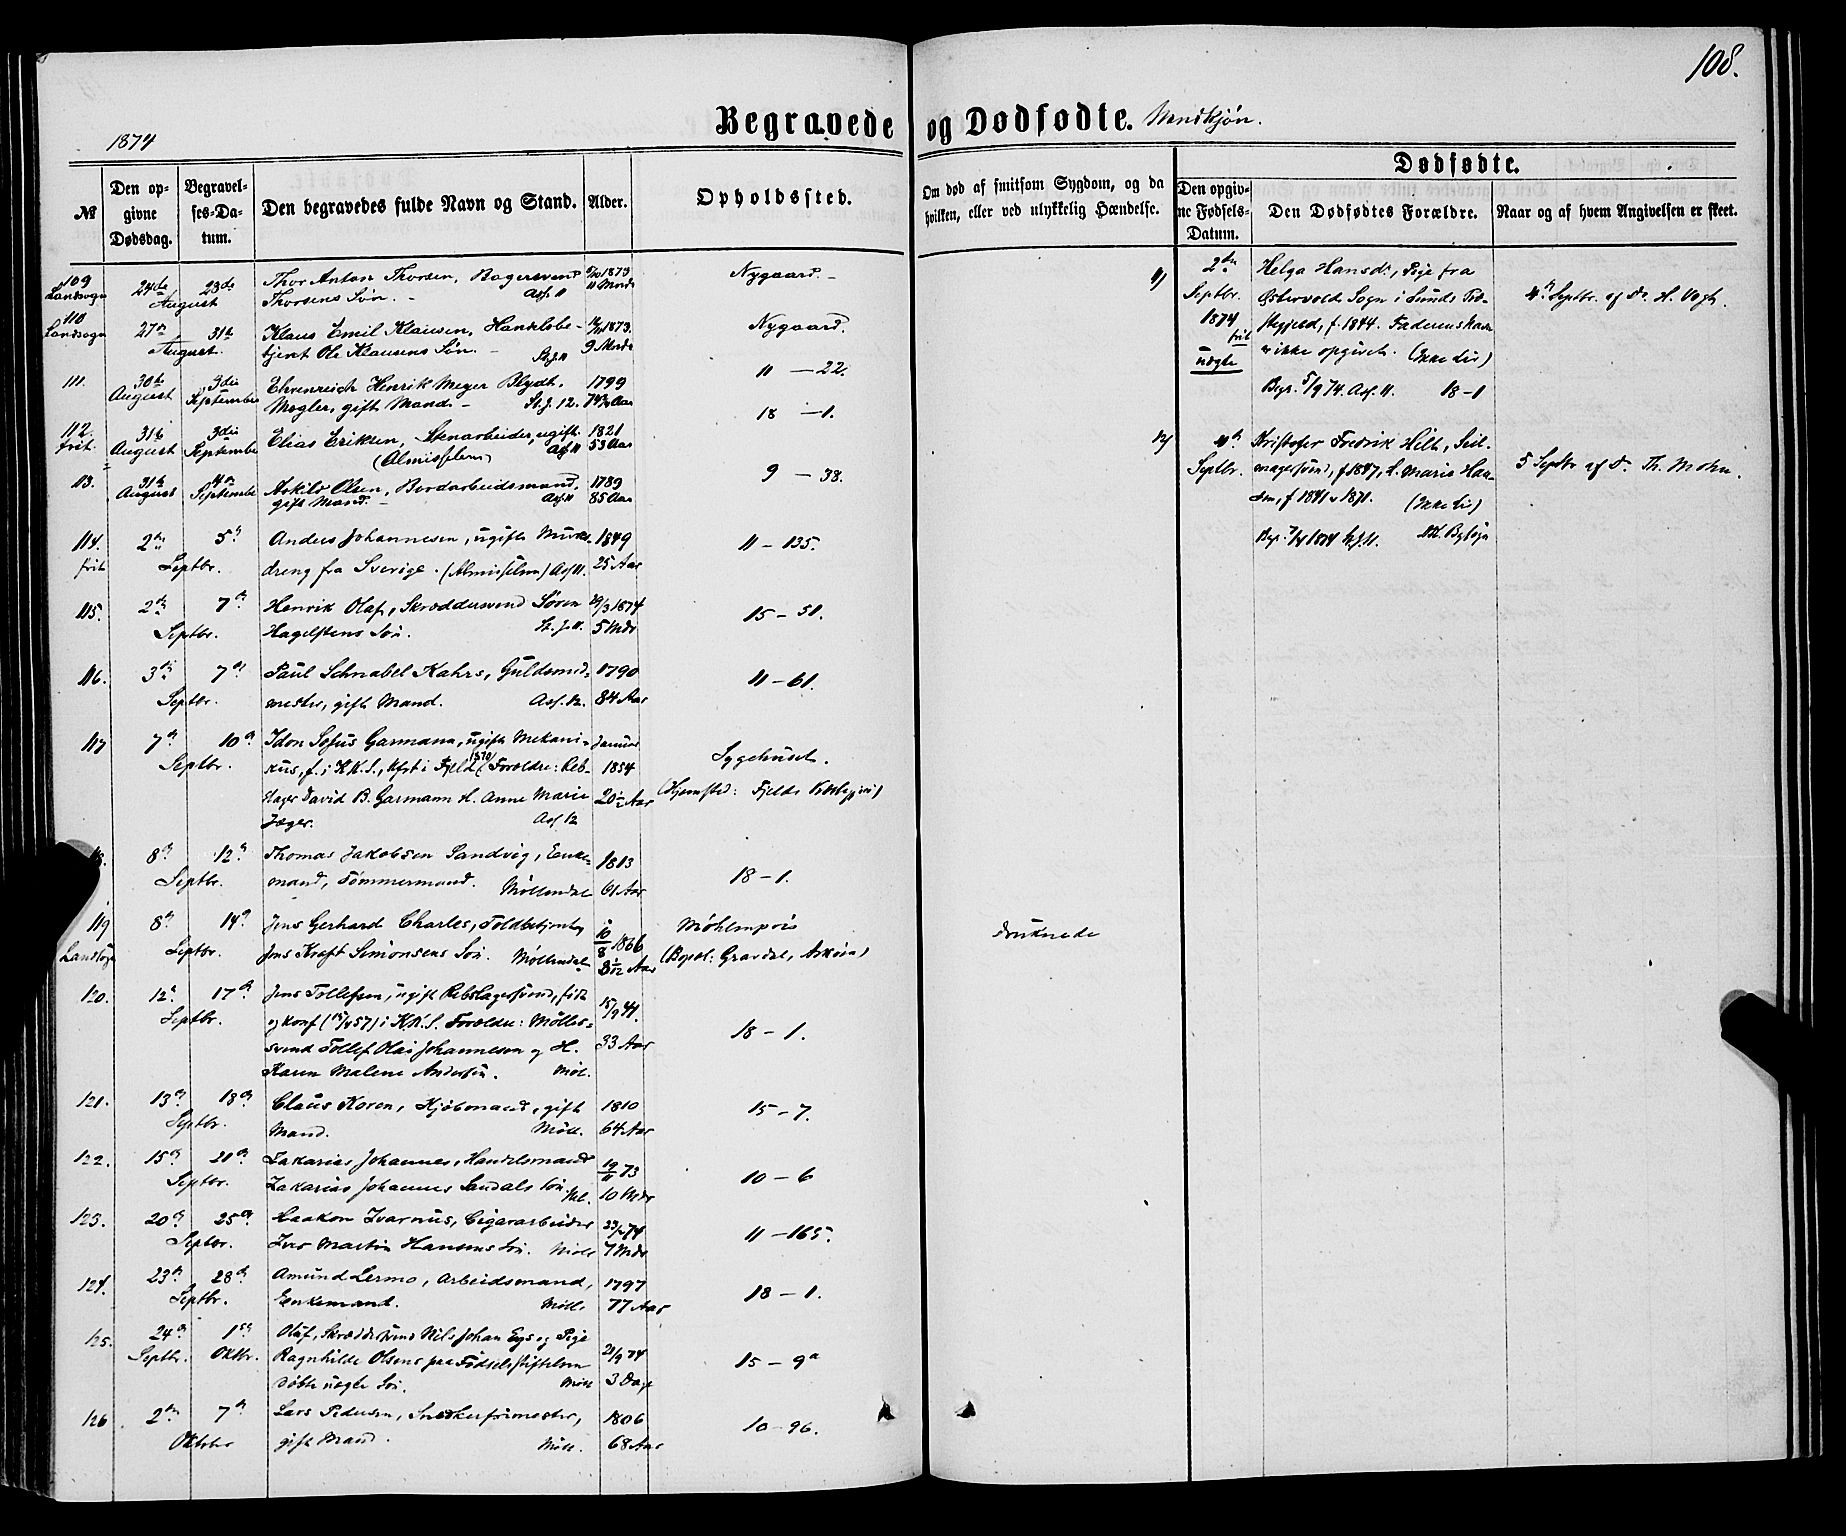 108.
1874
Begravede og Dødfødte. Mandkjøn.
№
Den opgivne Dødsdag.
Begravelses-Datum.
Den begravedes fulde Navn og Stand.
Alder.
Opholdssted.
Om død af smitsom Sygdom, og da hvilken, eller ved ulykkelig Hændelse.
Dødfødte.
Den opgivne Fødsels-Datum.
Den Dødfødtes Forældre.
Naar og af hvem Angivelsen er skeet.
109 24de 28de Thor Anton Thorsen, Bagersvend 1873 Nygaard.
Landsogn August Thorsens Søn. Asf. 11 11 Mndr
110 27de 31te Klaus Emil Klausen, Handelsbe- 1873. Nygaard.
Landsogn August. tjent Ole Klausens Søn. St. J. 11 9 Mndr
111. 30te 3die Ehrenreich Henrik Meyer Blydt, 1799 11 - 22.
August September Mægler, gift Mand. St. J. 12. Aar
112. 31te 3die Elias Eriksen, Stenarbeider, ugift. 1821 18 - 1.
frit. August September (Almisselem) Asf 11 53 Aar
113. 31te 4de Askild Olsen, Bordarbeidsmand, 1789 9 - 38.
August September gift Mand. Asf 11 85 Aar
114. 2den 5te Anders Johannesen, ugift Murer- 1849 11 - 135.
frit Septbr. dreng fra Sverige. (Almisselem) Asf 11. 25 Aar
115. 2den 7de Henrik Olaf, Skræddersvend Søren 29/3 1874 15 - 51.
Septbr. Hagelstens Søn. St. J. 11. 5 Mdr
116. 3die 7de Paul Schnabel Kahrs, Guldsmed- 1790 11 - 61.
Septbr. mester, gift Mand. Asf. 12. 84 Aar
117 7de 10de Idon Sofus Garmann, ugift Mekani- Januar Sygehuset.
Septbr. kus, f. i K.K.S., kfst i Fjeld 1870 (Forældre: Reb- 1854
slager David B. Garmann H. Anne Marie 20 1/2 Aar (Hjemsted: Fjelds
Jæger. Asf 12
8de 12te Thomas Jakobsen Sandvig, Enke- 1813 18 - 1.
Septbr. mand, Tømmermand. Møllendal 61 Aar
119 8de 14de Jens Gerhard Charles, Toldbetjent 10/8 1866 Møhlenpris druknede
Landsogn Septbr. Jens Kraft Simonsens Søn. Møllendal 8 1/12 Aar (Bopæl: Gravdal, Askøen)
120. 12te 17de Jens Tollefsen, ugift Rebslagersvend, født 15/9 41. 18 - 1.
Septbr. og konf (57) i K.K.S. Forældre: Møller- 33 Aar
svend Tollef Olai Johannesen og H.
Karen Malene Andersen. Møl.
121. 13de 18de Claus Koren, Kjøbmand, gift 1810 15 - 7.
Septbr. Mand. Møll. 64 Aar
122. 15de 21de Zakarias Johannes, Handelsmand 19/11 73 10 - 6
Septbr. Zakarias Johannes Sandals Søn Møl. 10 Mdr
123. 20de 25de Haakon Ivarnus, Cigararbeider 74 11 - 165.
Septbr. Iver Martin Hansens Søn. Møll 7 Mdr
124. 23de 28de Amund Lermo, Arbeidsmand, 1797 18 - 1.
Septbr. Enkemand. Møll. 77 Aar
125. 24de 1ste Oluf, Skræddersvend Nils Johan Eys og Pige 21/9 74 15 - 9a
Septbr. Oktbr. Ragnhilde Olsens paa Fødselsstiftelsen 3 Dage
døbte uægte Søn. Møll
126. 2den 7de Lars Pedersen, Snedkerformester, 1806 10 - 96.
Oktober gift Mand. Møll. 68 Aar
11) 2den Helga Hansdr, Pige fra 4de Septbr. af Dr. H. Vogt.
Septbr. Østervolds Sogn i Lunds Præ-
1874 stegjeld, f. 1844. Faderens Navn
frit uægte er ikke opgivet. (Ikke Liv)
Begr. 5/9 74. Asf. 11. 18 - 1
12) 4de Kristofer Fredrik Hilt, Seil- 5 Septbr af Dr. Th. Mohn.
Septbr. magersvend, f 1847, H. Marie Han-
sen, f 1841 v 1871. (Ikke Liv)
Begr. 1874 St. J. 11.